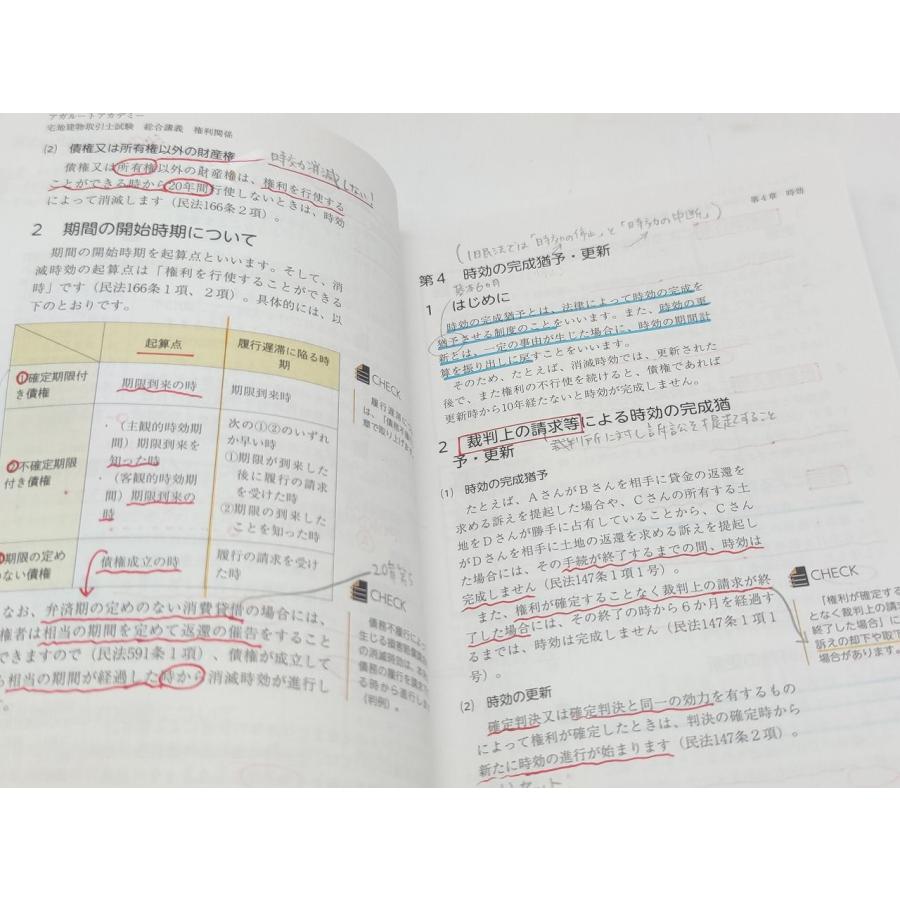 アガルートアカデミー
宅地建物取引士試験　総合講義　権利関係
(2)　債権又は所有権以外の財産権
時効が消滅しない！
債権又は所有権以外の財産権は、権利を行使する
ことができる時から20年間行使しないときは、時効
によって消滅します（民法166条２項）。
2　期間の開始時期について
期間の開始時期を起算点といいます。そして、消
滅時効の起算点は「権利を行使することができる
時」です（民法166条１項、２項）。具体的には、以
下のとおりです。
起算点
履行遅滞に陥る時
期
①確定期限付
き債権
期限到来の時
期限到来時
②不確定期限
付き債権
・（主観的時効期
間）期限到来を
知った時
・（客観的時効期
間）期限到来の
時
次の①②のいずれ
か早い時
①期限が到来した
後に履行の請求
を受けた時
②期限の到来した
ことを知った時
期限の定め
のない債権
債権成立の時
履行の請求を受け
た時
CHECK
履行遅滞に
は、「債務不
章で取り上げま
なお、弁済期の定めのない消費貸借の場合には、
権者は相当の期間を定めて返還の催告をすること
できますので（民法591条１項）、債権が成立して
ら相当の期間が経過した時から消滅時効が進行し
す。
CHECK
債務不履行によ
生じる損害賠償請
の消滅時効は、本
債務の履行を請求
る時から進行しま
（判例）。
第４章　時効
（旧民法では「時効の停止」と「時効の中断」）
第４　時効の完成猶予・更新
基本６ヵ月
1　はじめに
時効の完成猶予とは、法律によって時効の完成を
猶予させる制度のことをいいます。また、時効の更
新とは、一定の事由が生じた場合に、時効の期間計
算を振り出しに戻すことをいいます。
そのため、たとえば、消滅時効では、更新された
後で、また権利の不行使を続けると、債権であれば
更新時から10年経たないと時効が完成しません。
2　裁判上の請求等による時効の完成猶
予・更新
裁判所に対し訴訟を提起すること
(1)　時効の完成猶予
たとえば、ＡさんがＢさんを相手に貸金の返還を
求める訴えを提起した場合や、Ｃさんの所有する土
地をＤさんが勝手に占有していることから、Ｃさん
がＤさんを相手に土地の返還を求める訴えを提起し
た場合には、その手続が終了するまでの間、時効は
完成しません（民法147条１項１号）。
また、権利が確定することなく裁判上の請求が終
了した場合には、その終了の時から６か月を経過す
るまでは、時効は完成しません（民法147条１項１
号）。
CHECK
「権利が確定する
となく裁判上の請
終了した場合」に
訴えの却下や取下
場合があります。
(2)　時効の更新
確定判決又は確定判決と同一の効力を有するもの
によって権利が確定したときは、判決の確定時から
新たに時効の進行が始まります（民法147条２項）。